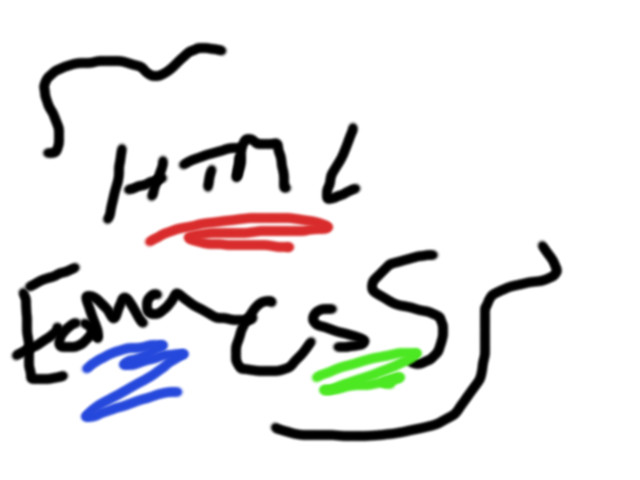 HTML
Emac CSS